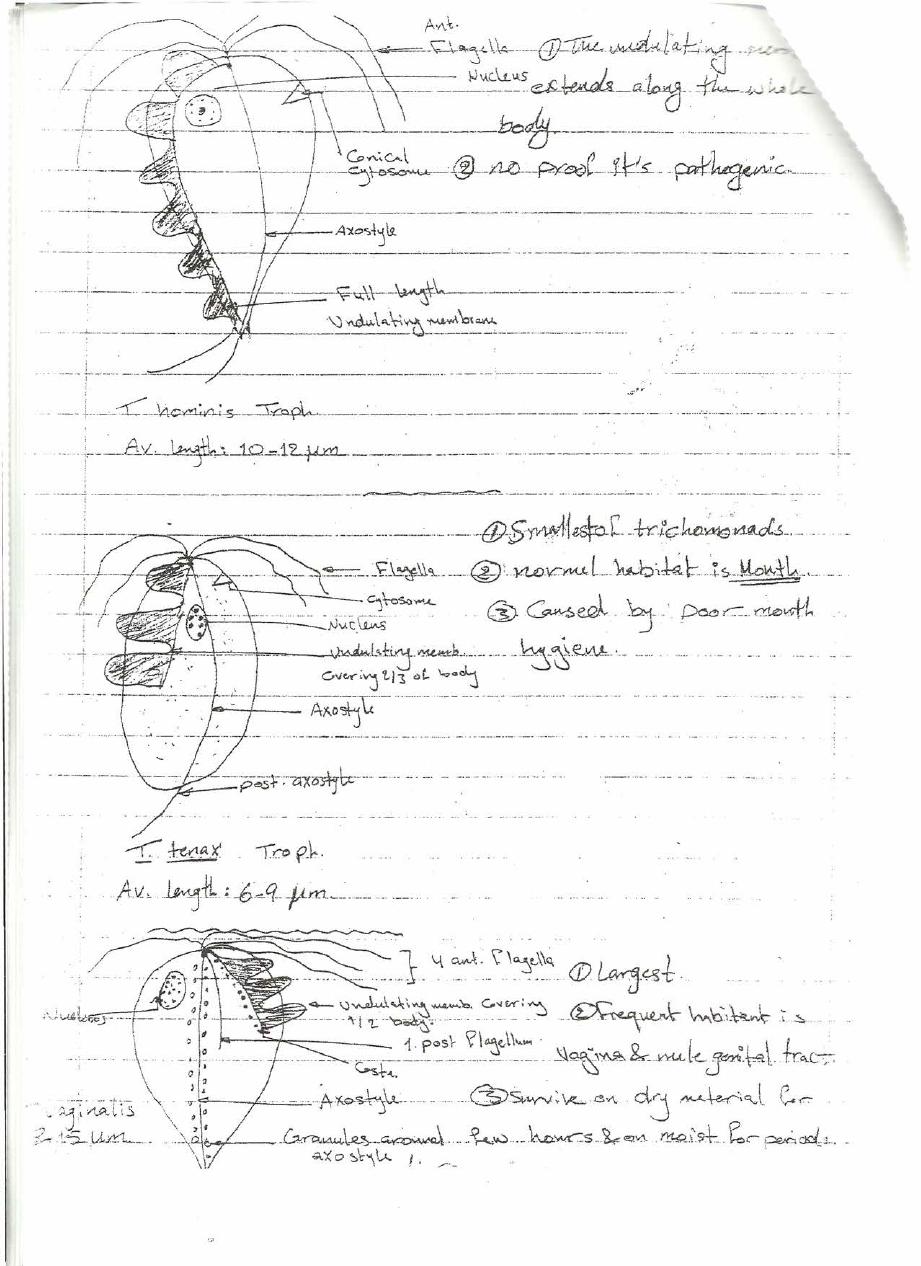 Ant.
Flagella
Nucleus
① The undulating
extends along the whole
body
② no proof it's pathogenic.
Conical
Cytosome
Axostyle
Full length
Undulating membrane
T. hominis Troph.
Av. length: 10-12 µm
① Smallest of trichomonads
② normel habitat is Mouth.
③ Caused by poor mouth
hygiene.
Flagella
Cytosome
Nucleus
Undulating memb.
Covering 2/3 of body
Axostyle
post. axostyle
T. tenax Troph.
Av. length: 6-9 µm
4 ant. Flagella
Undulating memb. Covering
1/2 body.
1. post Flagellum
Costa.
Nucleus
Axostyle
Granules around
axostyle
① Largest.
② Frequent hibitent is
Vagina & male genital trac
③ Survive on dry material for
few hours & on moist for periods.
aginalis
15 µm